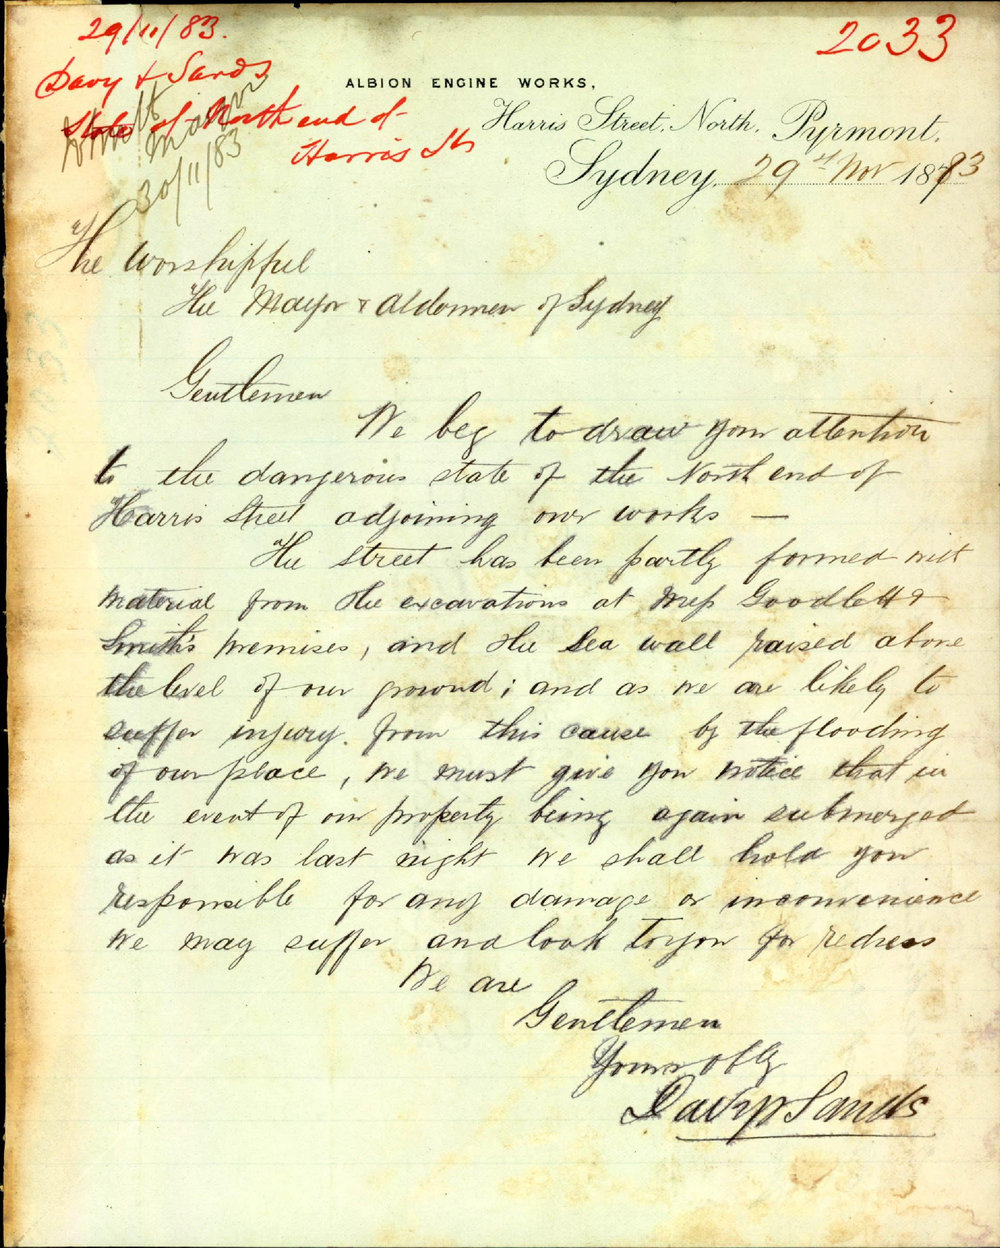 29/11/83.
2033
Davy & Sands
State of North end of
Harris St
Mayor
30/11/83
ALBION ENGINE WORKS,
Harris Street, North, Pyrmont.
Sydney, 29th Nov 1883
The Worshipful
The Mayor & Aldermen of Sydney
Gentlemen
We beg to draw your attention
to the dangerous state of the North end of
Harris Street adjoining our works —
The street has been partly formed with
material from the excavations at Messrs Goodlett &
Smith's premises, and the Sea wall raised above
the level of our ground; and as we are likely to
suffer injury from this cause by the flooding
of our place, we must give you notice that in
the event of our property being again submerged
as it was last night we shall hold you
responsible for any damage or inconvenience
we may suffer and look to you for redress
We are
Gentlemen
Yours obly
Davy & Sands